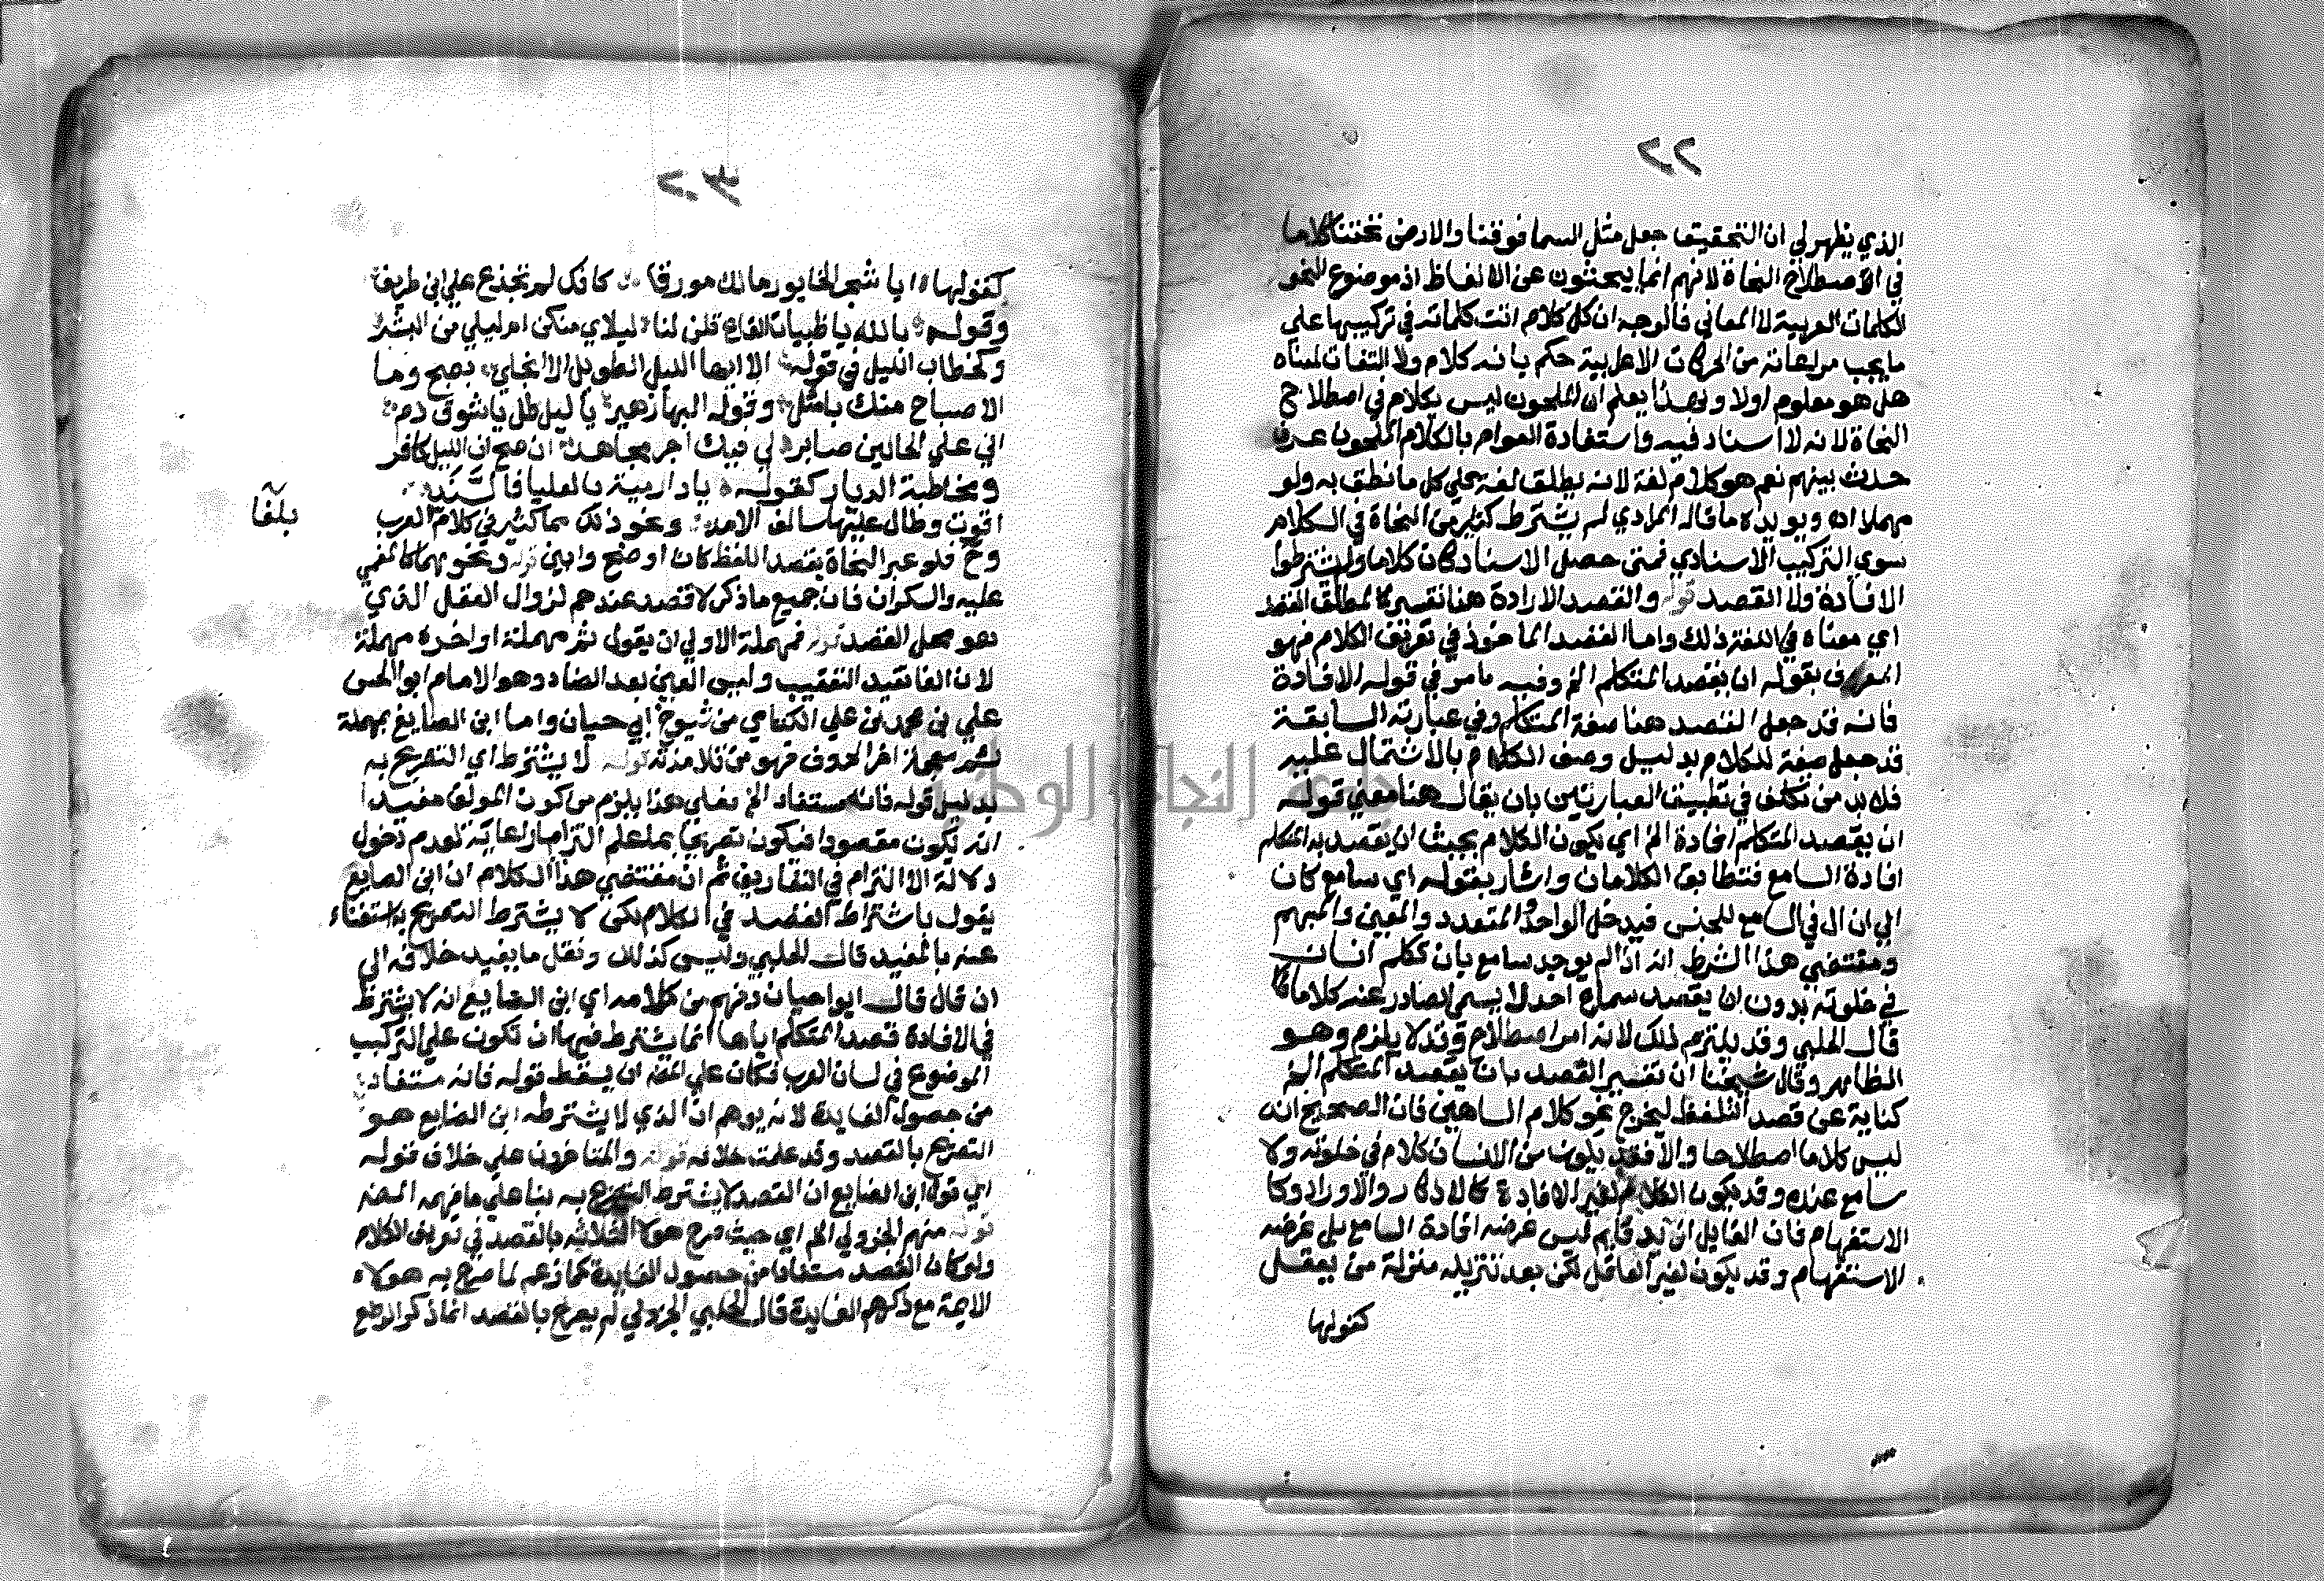 ٢٢
الذي يظهر لي ان التحقيق جعل مثل السما فوقنا والارض تحتنا كلاما
في الاصطلاح النحاة لانهم انما يبحثون عن الالفاظ اذ موضوع النحو
الكلمات العربية لا المعاني فالوجه ان كل كلام اتت كلماته في تركيبها على
ما يجب مراعاته من الحركات الاعرابية حكم بانه كلام ولا التفات لمعناه
هل هو معلوم اولا وبهذا يعلم ان الملحون ليس بكلام في اصطلاح
النحاة لانه لا اسناد فيه واستفادة العوام بالكلام الملحون عرف
حدث بينهم نعم هو كلام لغة لانه يطلق لغة علي كل ما نطق به ولو
مهملا اه ويويده ما قاله المرادي لم يشترط كثير من النحاة في الكلام
سوي التركيب الاسنادي فمتي حصل الاسناد كان كلاما ولم يشترطوا
الافادة ولا القصد قوله والقصد الارادة هنا تفسير لمطلق القصد
اي معناه في اللغة ذلك واما القصد الماخوذ في تعريف الكلام فهو
المعرف بقوله ان يقصد المتكلم الخ وفيه ما مر في قوله الافادة
فانه قد جعل القصد هنا صفة المتكلم وفي عبارته السابقة
قد جعله صفة للكلام بدليل وصف الكلام بالاشتمال عليه
فلا بد من تكلف في تطبيق العبارتين بان يقال هنا معني قوله
ان يقصد المتكلم افادة الخ اي يكون الكلام بحيث ان يقصد به المتكلم
افادة السامع فتطابق الكلامان واشار بقوله اي سامع كان
الي ان ال في السامع للجنس فيدخل الواحد والمتعدد والمعين والمبهم
ومقتضي هذا الشرط انه اذا لم يوجد سامع بان تكلم انسان
في خلوته بدون ان يقصد سماع احد لا يسمي الصادر عنه كلاما
قال الحلبي وقد يلتزم ذلك لانه امر اصطلاح وقد لا يلزم وهو
الظاهر وقال شيخنا ان تفسير القصد بان يقصد المتكلم الخ
كناية عن قصد التلفظ ليخرج نحو كلام الساهين فان الصحيح انه
ليس كلاما اصطلاحا والا فقد يكون من الانسان كلام في خلوته ولا
سامع عنده وقد يكون الكلام لغير الافادة كالاذكار والاوراد وكا
الاستفهام فان القايل ازيد قايم ليس غرضه افادة السامع بل غرضه
الاستفهام وقد يكون لغير العاقل لكن بعد تنزيله منزلة من يعقل
كقولها
٢٣
كقولها ايا شجر الخابور مالك مورقا كانك لم تجزع علي ابن طريف
وقوله بالله يا ظبيات القاع قلن لنا ليلاي منكن ام ليلي من البشر
وكخطاب الليل في قوله الا ايها الليل الطويل الا انجلي بصبح وما
الاصباح منك بامثل وقول البها زهير يا ليل طل يا شوق دم
اني علي الحالين صابر لي فيك اجر مجاهد ان صح ان الليل كافر
ومخاطبة الديار كقوله يا دار مية بالعليا فالسند
اقوت وطال عليها سالف الامد ونحو ذلك مما كثر في كلام العرب
وح فلو عبر النحاة بقصد اللفظ كان اوضح وابين قوله ونحوهما كالمغمي
عليه والسكران فان جميع ما ذكر لا قصد عندهم لزوال العقل الذي
هو محل القصد قوله فمهملة الاولي ان يقول ثم مهملة او اخره مهملة
لان الفا تفيد التعقيب وليس الغين بعد الضاد وهو الامام ابو الحسن
علي بن محمد بن علي الكتامي من شيوخ ابي حيان واما ابن الصايغ بمهملة
ثم معجمة اخر الحروف فهو من تلامذته قوله لا يشترط اي التصريح به
بدليل قوله فانه مستفاد الخ فعلي هذا يلزم من كون المولف مفيدا
انه يكون مقصودا فيكون تصريحا بما علم التزاما رعاية لعدم دخول
دلالة الالتزام في التعاريف ثم ان مقتضي هذا الكلام ان ابن الصايغ
يقول باشتراط القصد في الكلام لكن لا يشترط التصريح به استغناء
عنه بالمفيد قال الحلبي وليس كذلك ونقل ما يفيد خلافه الي
ان قال قال ابو حيان وفهم من كلامه اي ابن الضايع انه لا يشترط
في الافادة قصد المتكلم اياها انما يشترط فيها ان تكون علي التركيب
الموضوع في لسان العرب فكان علي المص ان يسقط قوله فانه مستفاد
من حصول الفايدة لانه يوهم ان الذي لا يشترطه ابن الضايع هو
التصريح بالقصد وقد علمت خلافه قوله والمتاخرون علي خلاف قوله
اي قول ابن الضايع ان القصد لا يشترط التصريح به بنا علي ما فهمه المص
قوله منهم الجزولي الخ اي حيث صرح هولاء الثلاثة بالقصد في تعريف الكلام
ولو كان القصد مستفادا من حصول الفايدة كما زعم لما صرح به هولاء
الايمة مع ذكرهم الفايدة قال الحلبي الجزولي لم يصرح بالقصد انما ذكر الوضع
بلغا
جامعة النجاح الوطنية